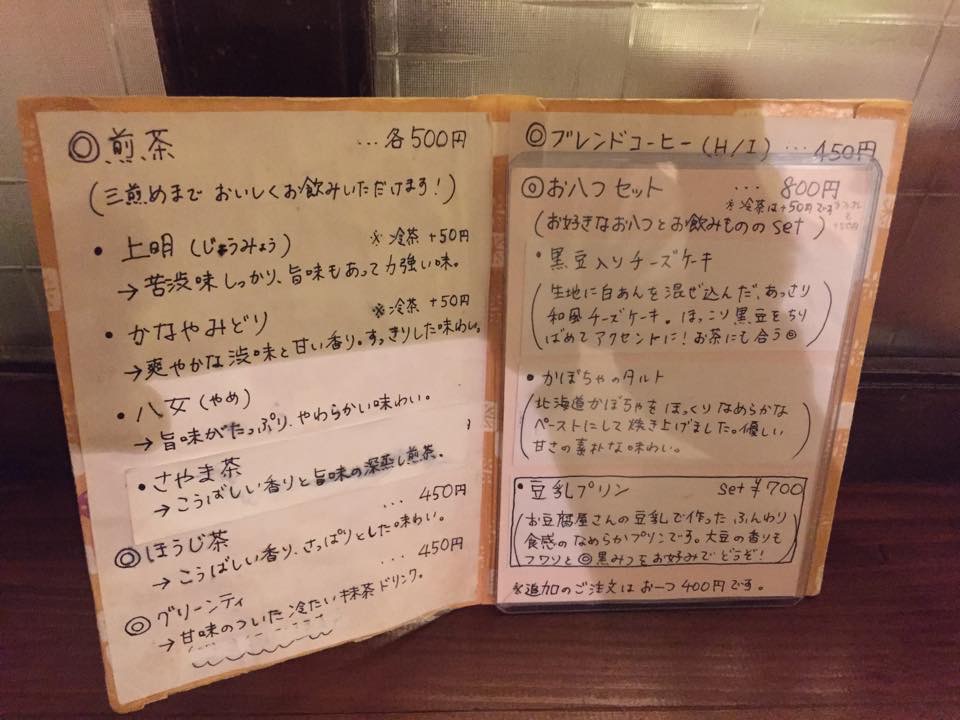 ◎煎茶 ... 各500円
(三煎めまで おいしくお飲みいただけます!)
・上明(じょうみょう) ※冷茶 +50円
→苦渋味しっかり、旨味もあって力強い味。
・かなやみどり ※冷茶 +50円
→爽やかな渋味と甘い香り。すっきりした味わい。
・八女(やめ)
→旨味がたっぷり、やわらかい味わい。
・さやま茶
→こうばしい香りと旨味の深蒸し煎茶。
◎ほうじ茶 ... 450円
→こうばしい香り、さっぱりとした味わい。
◎グリーンティ ... 450円
→甘味のついた冷たい抹茶ドリンク。
◎ブレンドコーヒー(H/I) ... 450円
◎お八つセット ... 800円
※冷茶は+50円です
(お好きなお八つとお飲みもののset)
・黒豆入りチーズケーキ
(生地に白あんを混ぜ込んだ、あっさり
和風チーズケーキ。ほっこり黒豆をちり
ばめてアクセントに!お茶にも合う◎)
・かぼちゃのタルト
(北海道かぼちゃを ほっくりなめらかな
ペーストにして焼き上げました。優しい
甘さの素朴な味わい。)
・豆乳プリン set ¥700
(お豆腐屋さんの豆乳で作った ふんわり
食感のなめらかプリンです。大豆の香りも
フワリと◎黒みつをお好みでどうぞ!)
※追加のご注文はお一つ400円です。